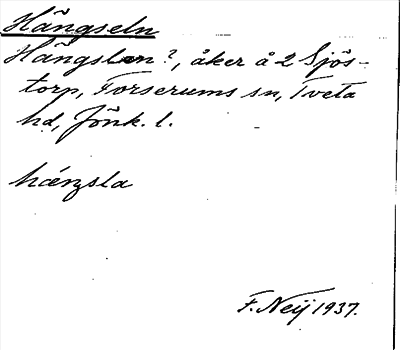 Hängseln
Hängslen?, åker å 2 Sjös-
torp, Forserums sn, Tveta
hd, Jönk. l.
hängsla
F. Neij 1937.